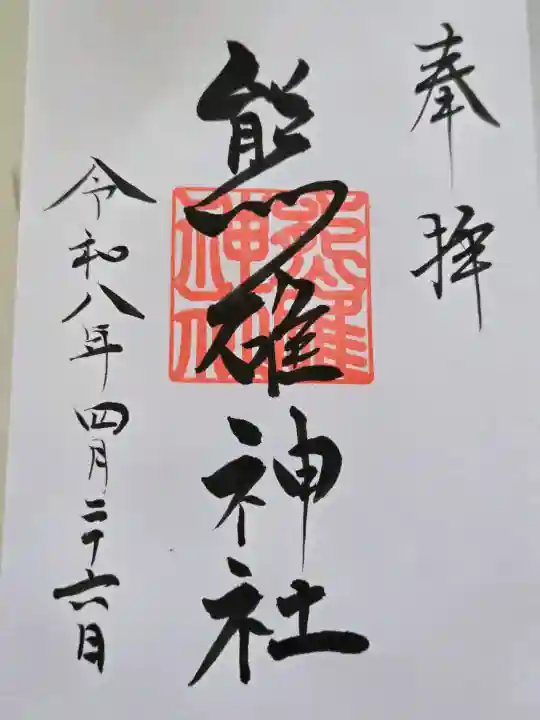 奉拝
熊碓神社
令和八年四月二十六日